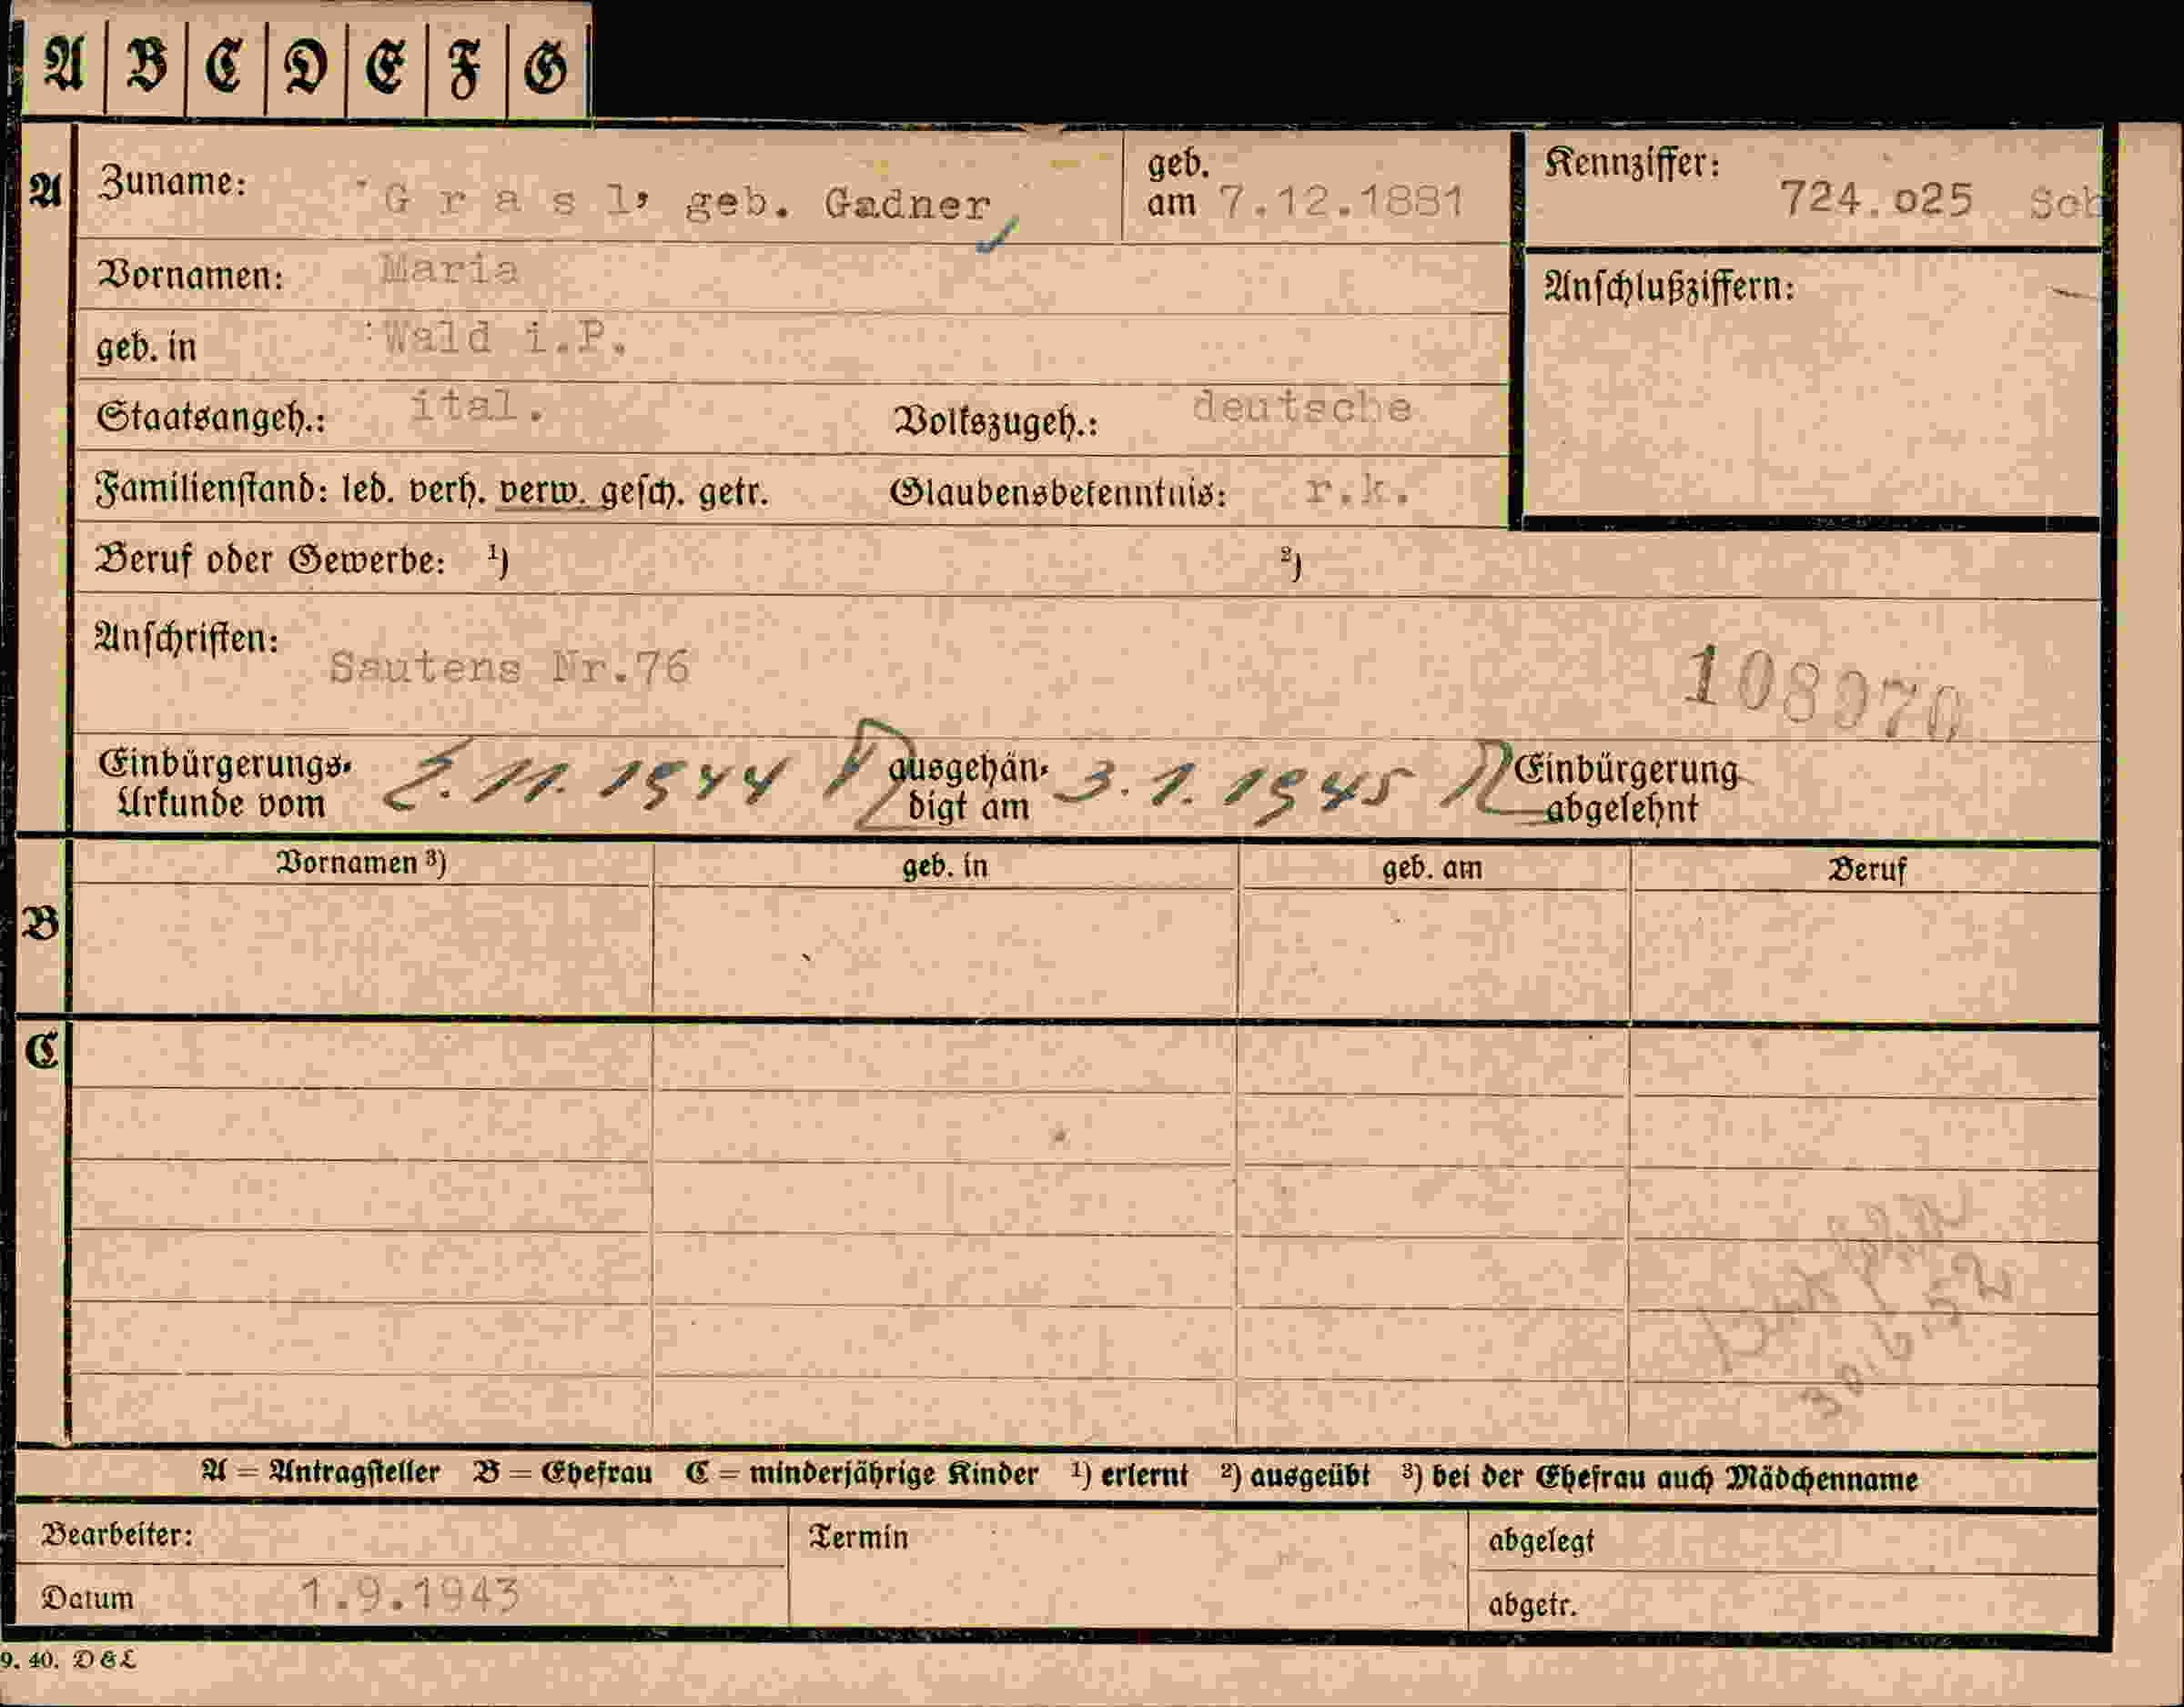 A B C D E F G
A Zuname: Grasl, geb. Gadner geb. am 7.12.1881 Kennziffer: 724.025 Sch
Vornamen: Maria Anschlußziffern:
geb. in Wald i.P.
Staatsangeh.: ital. Volkszugeh.: deutsche
Familienstand: led. verh. verw. gesch. getr. Glaubensbekenntnis: r.k.
Beruf oder Gewerbe: ¹) ²)
Anschriften:
Sautens Nr.76
108970
Einbürgerungs- Urkunde vom 2.11.1944 ausgehän- digt am 3.1.1945 Einbürgerung abgelehnt
Vornamen ³) geb. in geb. am Beruf
B
C
30.6.52
A = Antragsteller B = Ehefrau C = minderjährige Kinder ¹) erlernt ²) ausgeübt ³) bei der Ehefrau auch Mädchenname
Bearbeiter: Termin abgelegt
Datum 1.9.1943 abgetr.
9. 40. D&L